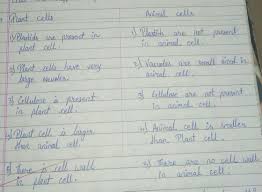 Plant cells
Animal cells
1) Plastids are present in
plant cell.
1) Plastids are not present
in animal cell.
2) Plant cells have very
large vacuoles.
2) Vacuoles are small sized in
animal cell.
3) Cellulose is present
in plant cell.
3) Cellulose are not present
in animal cell.
4) Plant cell is larger
than animal cell.
4) Animal cell is smaller
than Plant cell.
5) There is cell wall
in plant cell.
5) There are no cell wall
in animal cell.